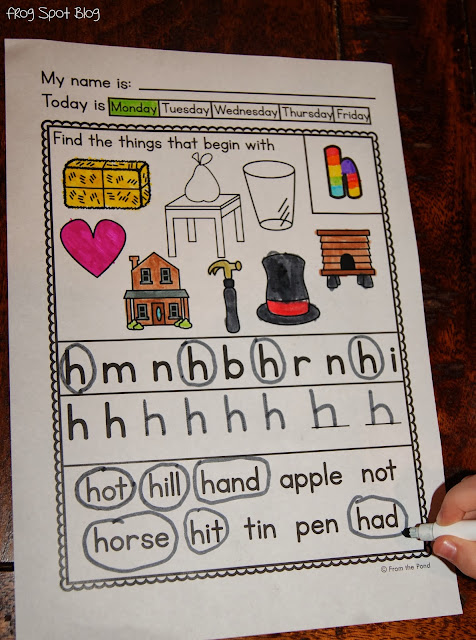 Frog Spot Blog
My name is:
Today is Monday Tuesday Wednesday Thursday Friday
Find the things that begin with
h
h m n h b h r n h i
h h h h h h h h
hot hill hand apple not
horse hit tin pen had
© From the Pond